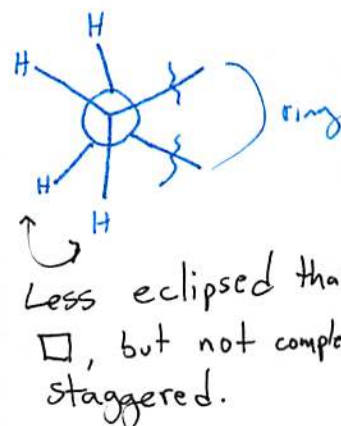 H
H
ring
H
H
Less eclipsed tha
□, but not comple
staggered.